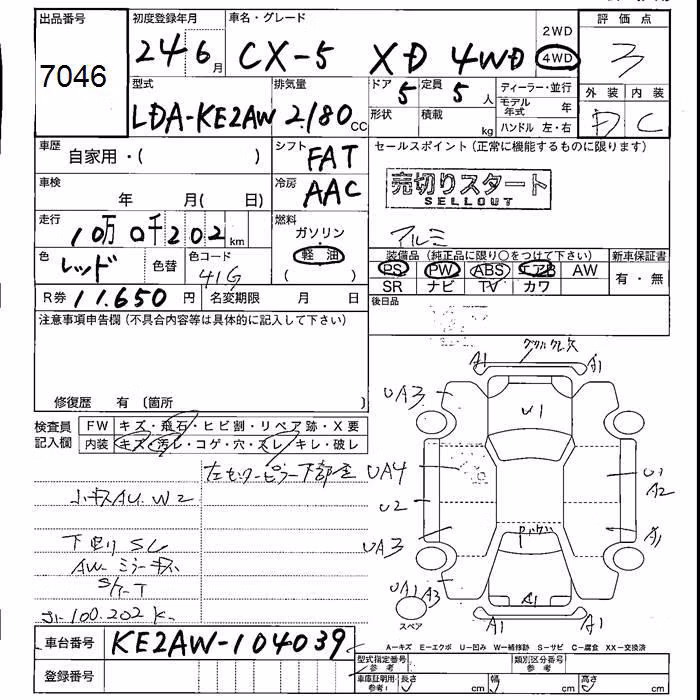 出品番号 初度登録年月 車名・グレード 2WD 評価点
7046 24 6月 CX-5 XD 4WD 4WD 3
型式 排気量 ドア 定員 ディーラー・並行 外装 内装
LDA-KE2AW 2180cc 5 5人 モデル年式 年 D C
形状 積載 kg ハンドル 左・右
車歴 自家用・( ) シフト FAT セールスポイント(正常に機能するものに限ります)
車検 年 月( 日) 冷房 AAC 売切りスタート
SELLOUT
走行 10万0千202km 燃料 ガソリン アルミ
軽油
( )
装備品(純正品に限り○をつけて下さい) 新車保証書
色 レッド 色替 色コード 41G PS PW ABS エアB AW 有・無
SR ナビ TV カワ
R券 11.650円 名変期限 月 日 後日品
注意事項申告欄(不具合内容等は具体的に記入して下さい)
修復歴 有 〔箇所 〕
A1 A1
UA3 U1 A3
検査員記入欄 FW キズ・飛石・ヒビ割・リペア跡・X要
内装 キズ・汚レ・コゲ・穴・スレ・キレ・破レ
UA4 U1
A2
U2
W2
下廻り
UA3 A1
UA1 A3 A1
スペア A1 A1
100.202
車台番号 KE2AW-104039
A－キズ E－エクボ U－凹み W－補修跡 S－サビ C－腐食 XX－交換済
登録番号
型式指定番号 参考 類別区分番号
車庫証明用・参考 長さ cm 幅 cm 高さ cm